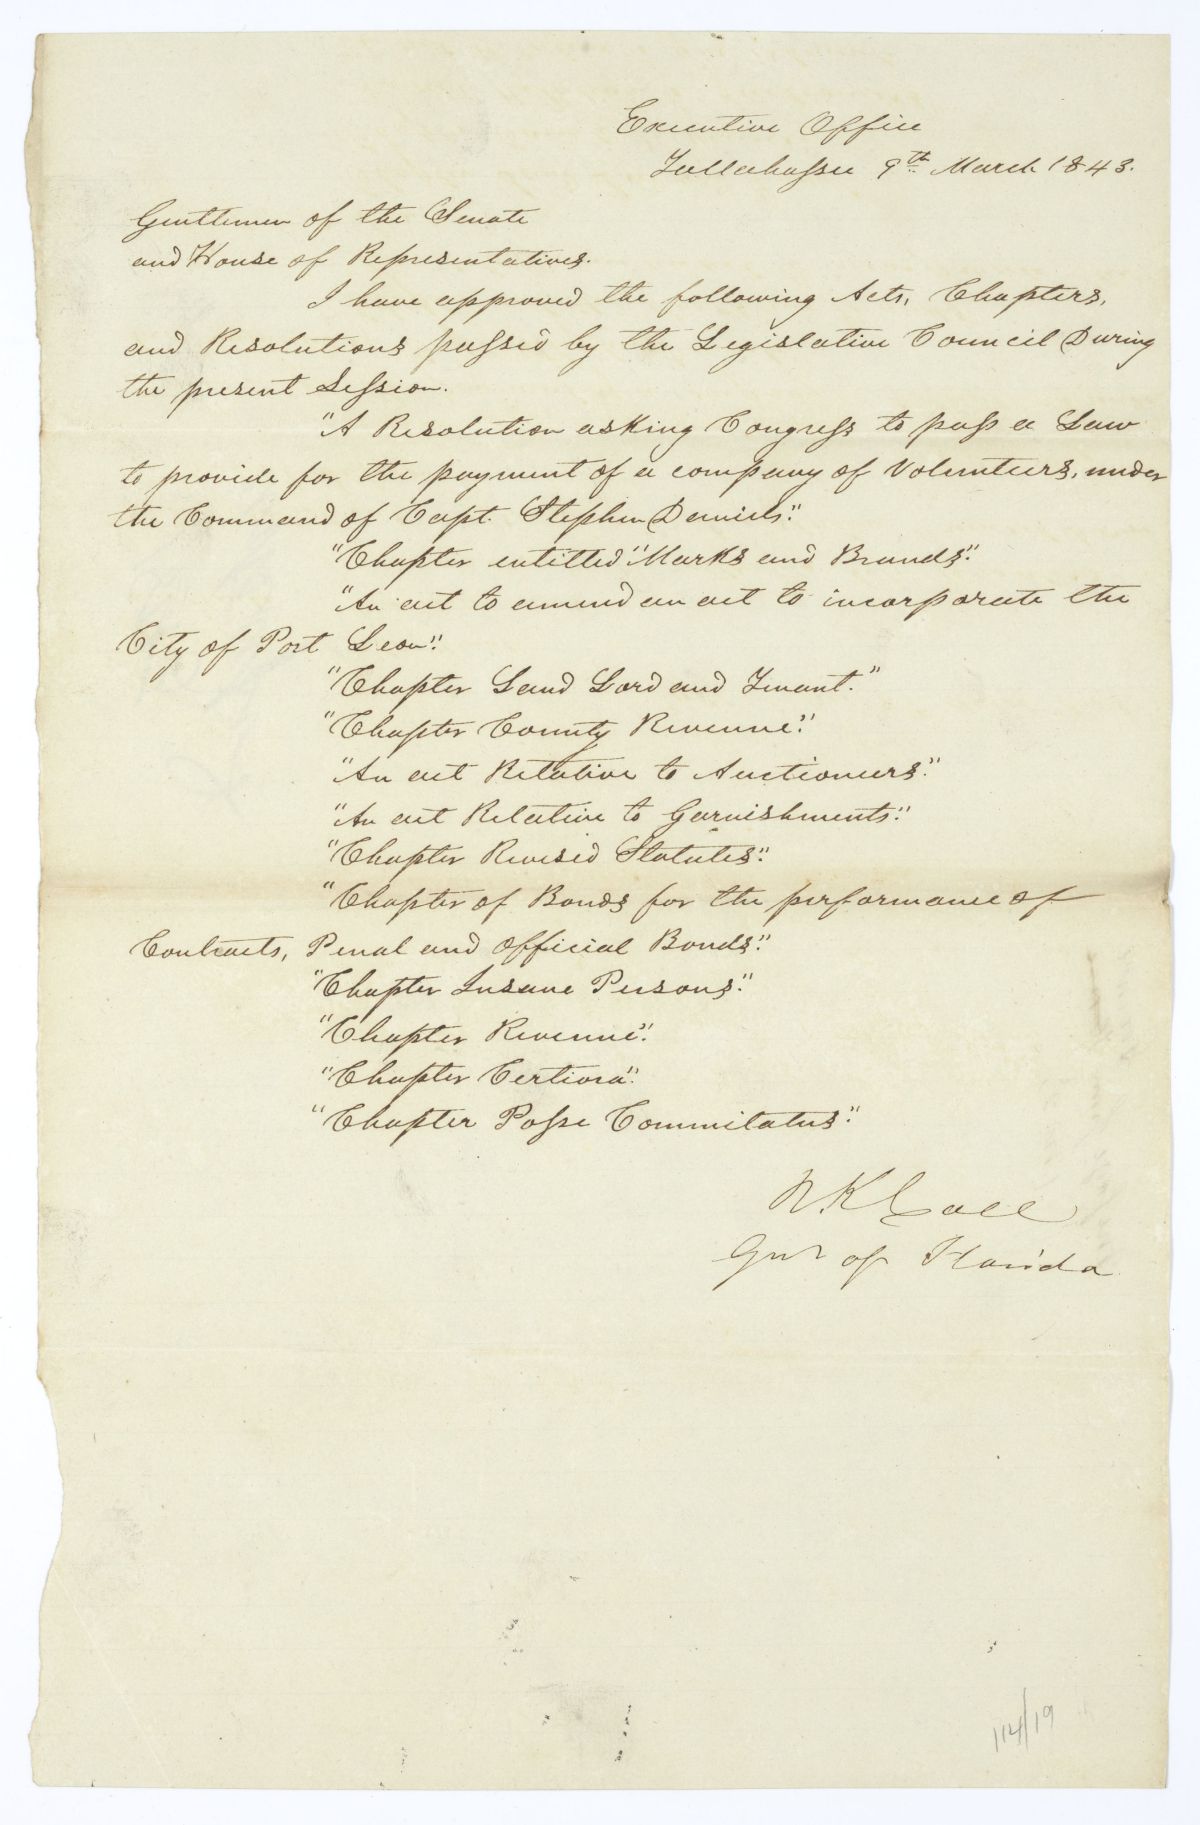 Executive Office
Tallahassee 9th March 1843.
Gentlemen of the Senate
and House of Representatives.
I have approved the following Acts, Chapters,
and Resolutions passed by the Legislative Council During
the present Session.
"A Resolution asking Congress to pass a Law
to provide for the payment of a company of Volunteers, under
the Command of Capt. Stephen Daniels."
"Chapter entitled "Marks and Brands".
"An act to amend an act to incorporate the
City of Port Leon".
"Chapter Land Lord and Tenant."
"Chapter County Revenue."
"An act Relative to Auctioneers."
"An act Relative to Garnishments."
"Chapter Revised Statutes".
"Chapter of Bonds for the performance of
Contracts, Penal and official Bonds."
"Chapter Insane Persons."
"Chapter Revenue".
"Chapter Certiora".
"Chapter Posse Commitatus."
R. K. Call
Govr of Florida
114/19